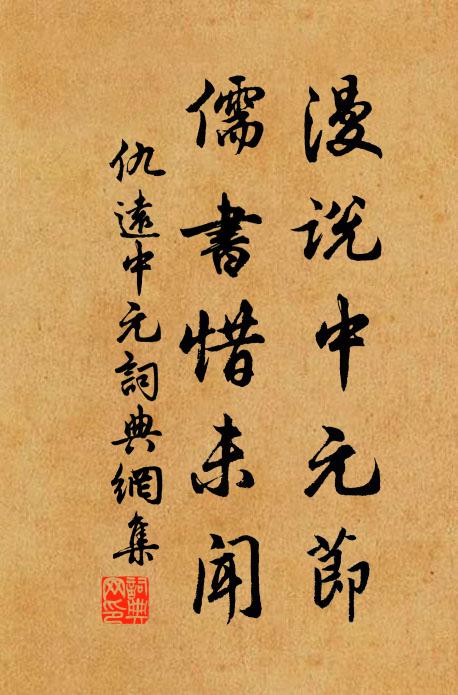 漫説中元節
儒書惜未聞
仇遠中元詞典網集
詞典網印